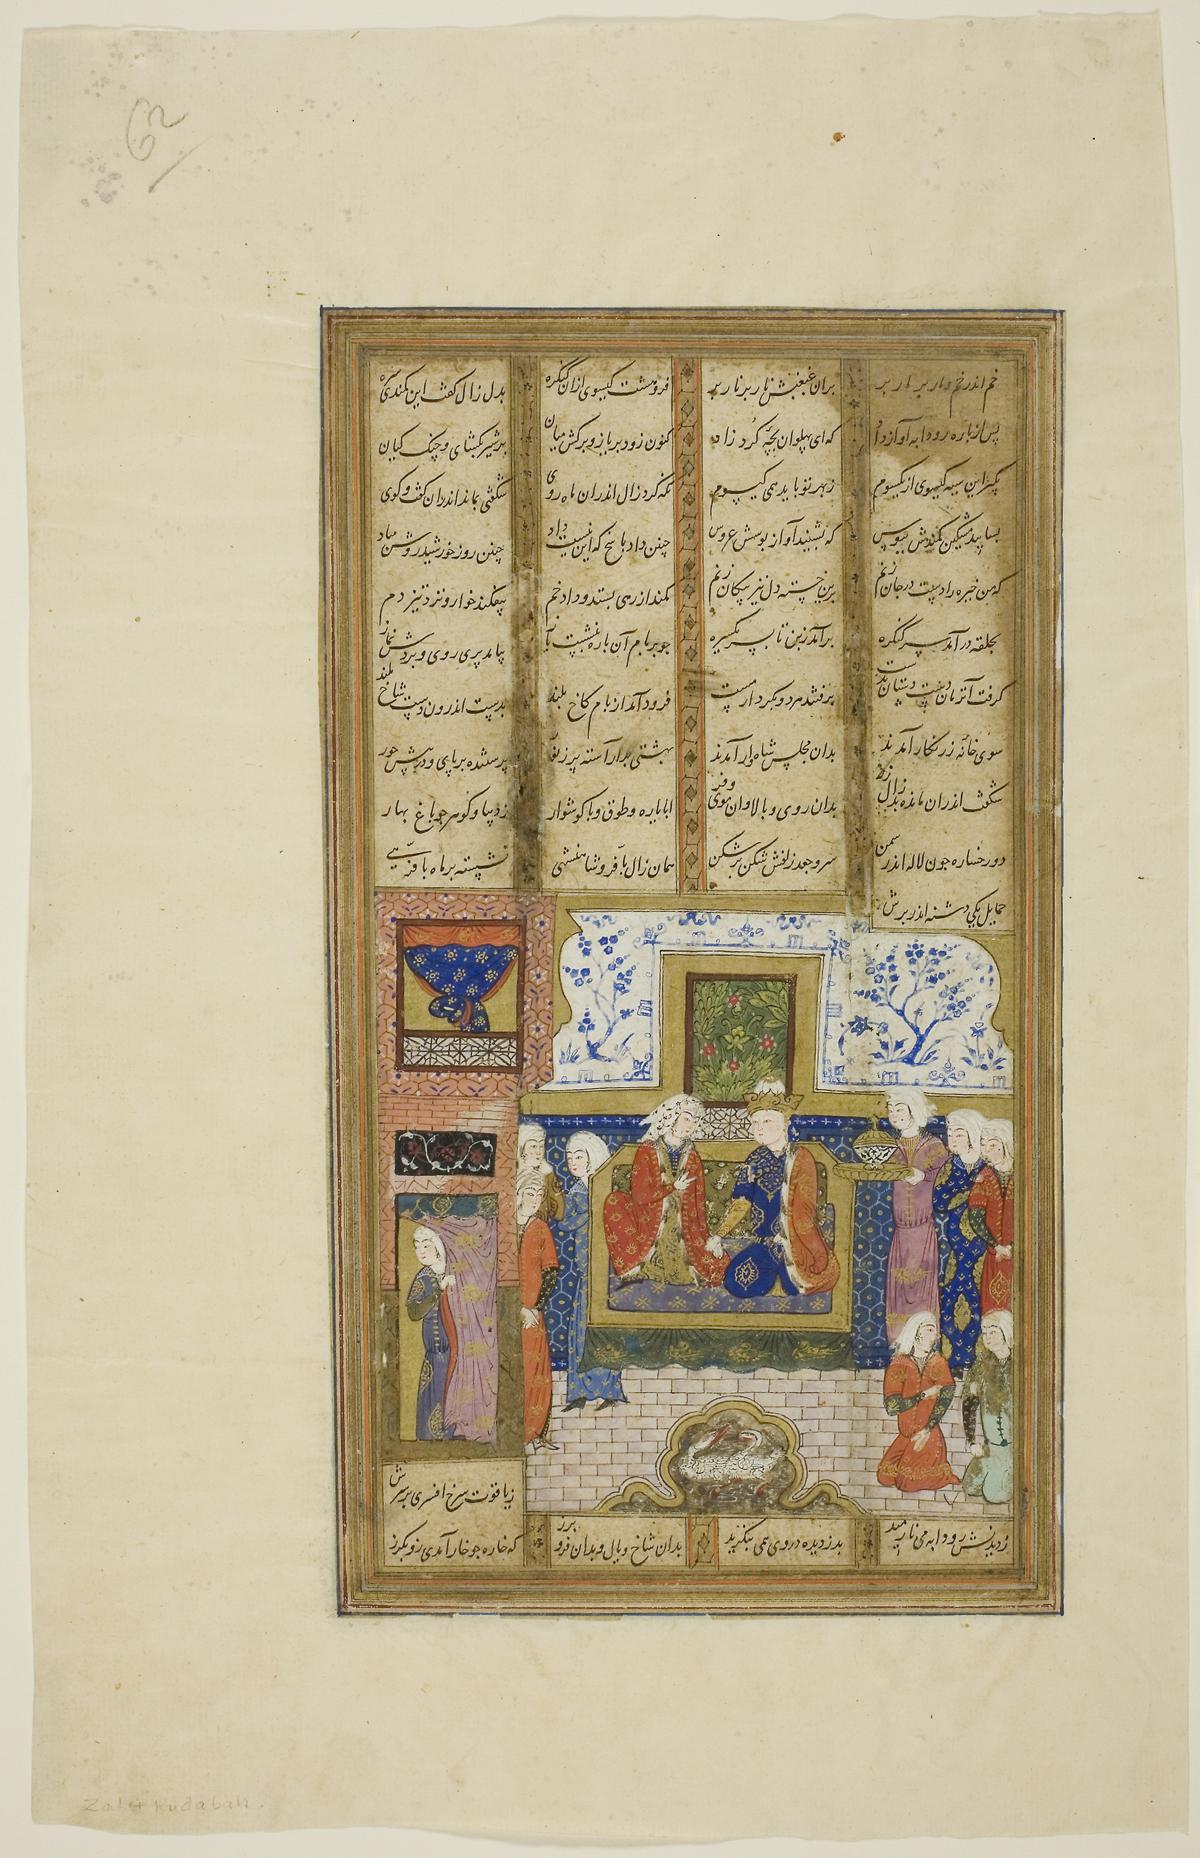 62
خم اندر خم و مار بر مار بر بران غبغبش نار بر نار بر فروهشت گیسوی ازان کنگره بدل زال گفت این کمندی سره
پس از باره رودابه آواز داد که ای پهلوان بچه گرد زاد کنون زود بریاز و برکش میان بر شیر بگشای و چنگ کیان
بگیر این سیه گیسوی از یکسوم ز بهر تو باید همی گیسوم نگه کرد زال اندران ماه روی شگفتی بماند اندران گفت و گوی
بسایید مشکین کمندش ببوس که بشنید آواز بوسش عروس چنین داد پاسخ که این نیست داد چنین روز خورشید روشن مباد
که من خیره را دست در جان زنم برین خسته دل تیر پیکان زنم کمند از رهی بستد و داد خم بیفکند خوار و نزد تیز دم
بحلقه درآمد سر کنگره برآمد ز بن تا بسر یکسره چو بر بام آن باره بنشست باز بیامد پری روی و بردش نماز
گرفت آنزمان دست دستان بدست برفتند هر دو بکردار مست فرود آمد از بام کاخ بلند بدست اندرون دست شاخ بلند
سوی خانه زرنگار آمدند بدان مجلس شاهوار آمدند بهشتی بد آراسته پر ز نور پرستنده بر پای و در پیش حور
شگفت اندران مانده بد زال زر بدان روی و بالا و ان موی و فر ابا یاره و طوق و با گوشوار ز دیبا و گوهر چو باغ بهار
دو رخساره چون لاله اندر سمن سر و جعد زلفش شکن بر شکن همان زال با فر شاهنشهی نشسته بر ماه با فرهی
حمایل یکی دشنه اندر برش
ز یاقوت سرخ افسری بر سرش
ز دیدنش رودابه می نارمید بدزدیده در وی همی بنگرید بدان شاخ و یال و بدان فر و برز که خاره چو خار آمدی زو بگرز
Zal + Rudabah.